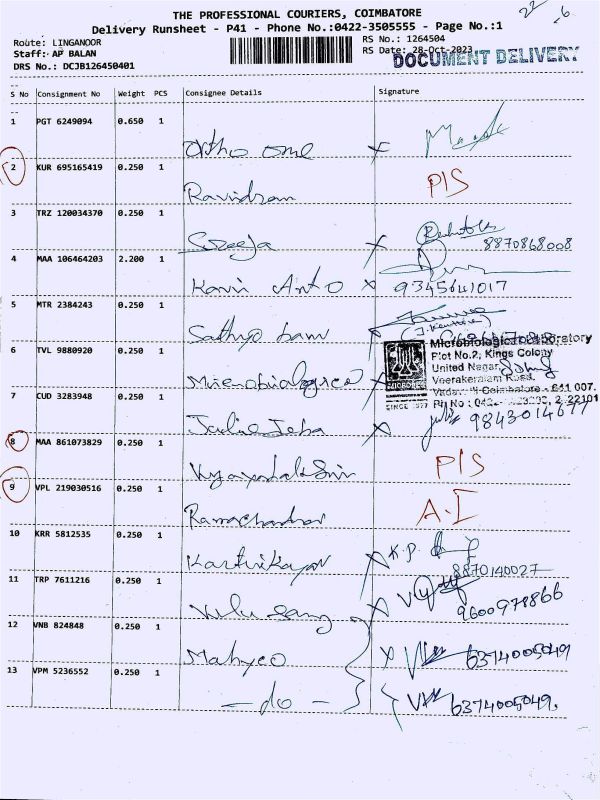 THE PROFESSIONAL COURIERS, COIMBATORE
Delivery Runsheet - P41 - Phone No.:0422-3505555 - Page No.:1
Route: LINGANOOR
RS No.: 1264504
Staff: AP BALAN
RS Date: 28-Oct-2023
DRS No.: DCJB126450401
DOCUMENT DELIVERY
S No Consignment No Weight PCS Consignee Details Signature
1 PGT 6249094 0.650 1
Ortho one x
2 KUR 695165419 0.250 1 P/S
Ravindran
3 TRZ 120034370 0.250 1
Sreeja x 8870868008
4 MAA 106464203 2.200 1
Kavin Anto x 9345641017
5 MTR 2384243 0.250 1
Sathya x
6 TVL 9880920 0.250 1
Microbiological Laboratory
Plot No.2, Kings Colony
United Nagar,
Veerakeralam Road,
Coimbatore - 641 007.
SINCE 1977 Ph No : 0422
7 CUD 3283948 0.250 1
Julie Jeba x 9843014677
8 MAA 861073829 0.250 1 P/S
9 VPL 219030516 0.250 1 A.I
Ramachandran
10 KRR 5812535 0.250 1 x K.P.
Karthikayan 8870140027
11 TRP 7611216 0.250 1
x 9600978866
12 VNB 824848 0.250 1
Mahyco x 6374005049
13 VPM 5236552 0.250 1
- do - 6374005049.